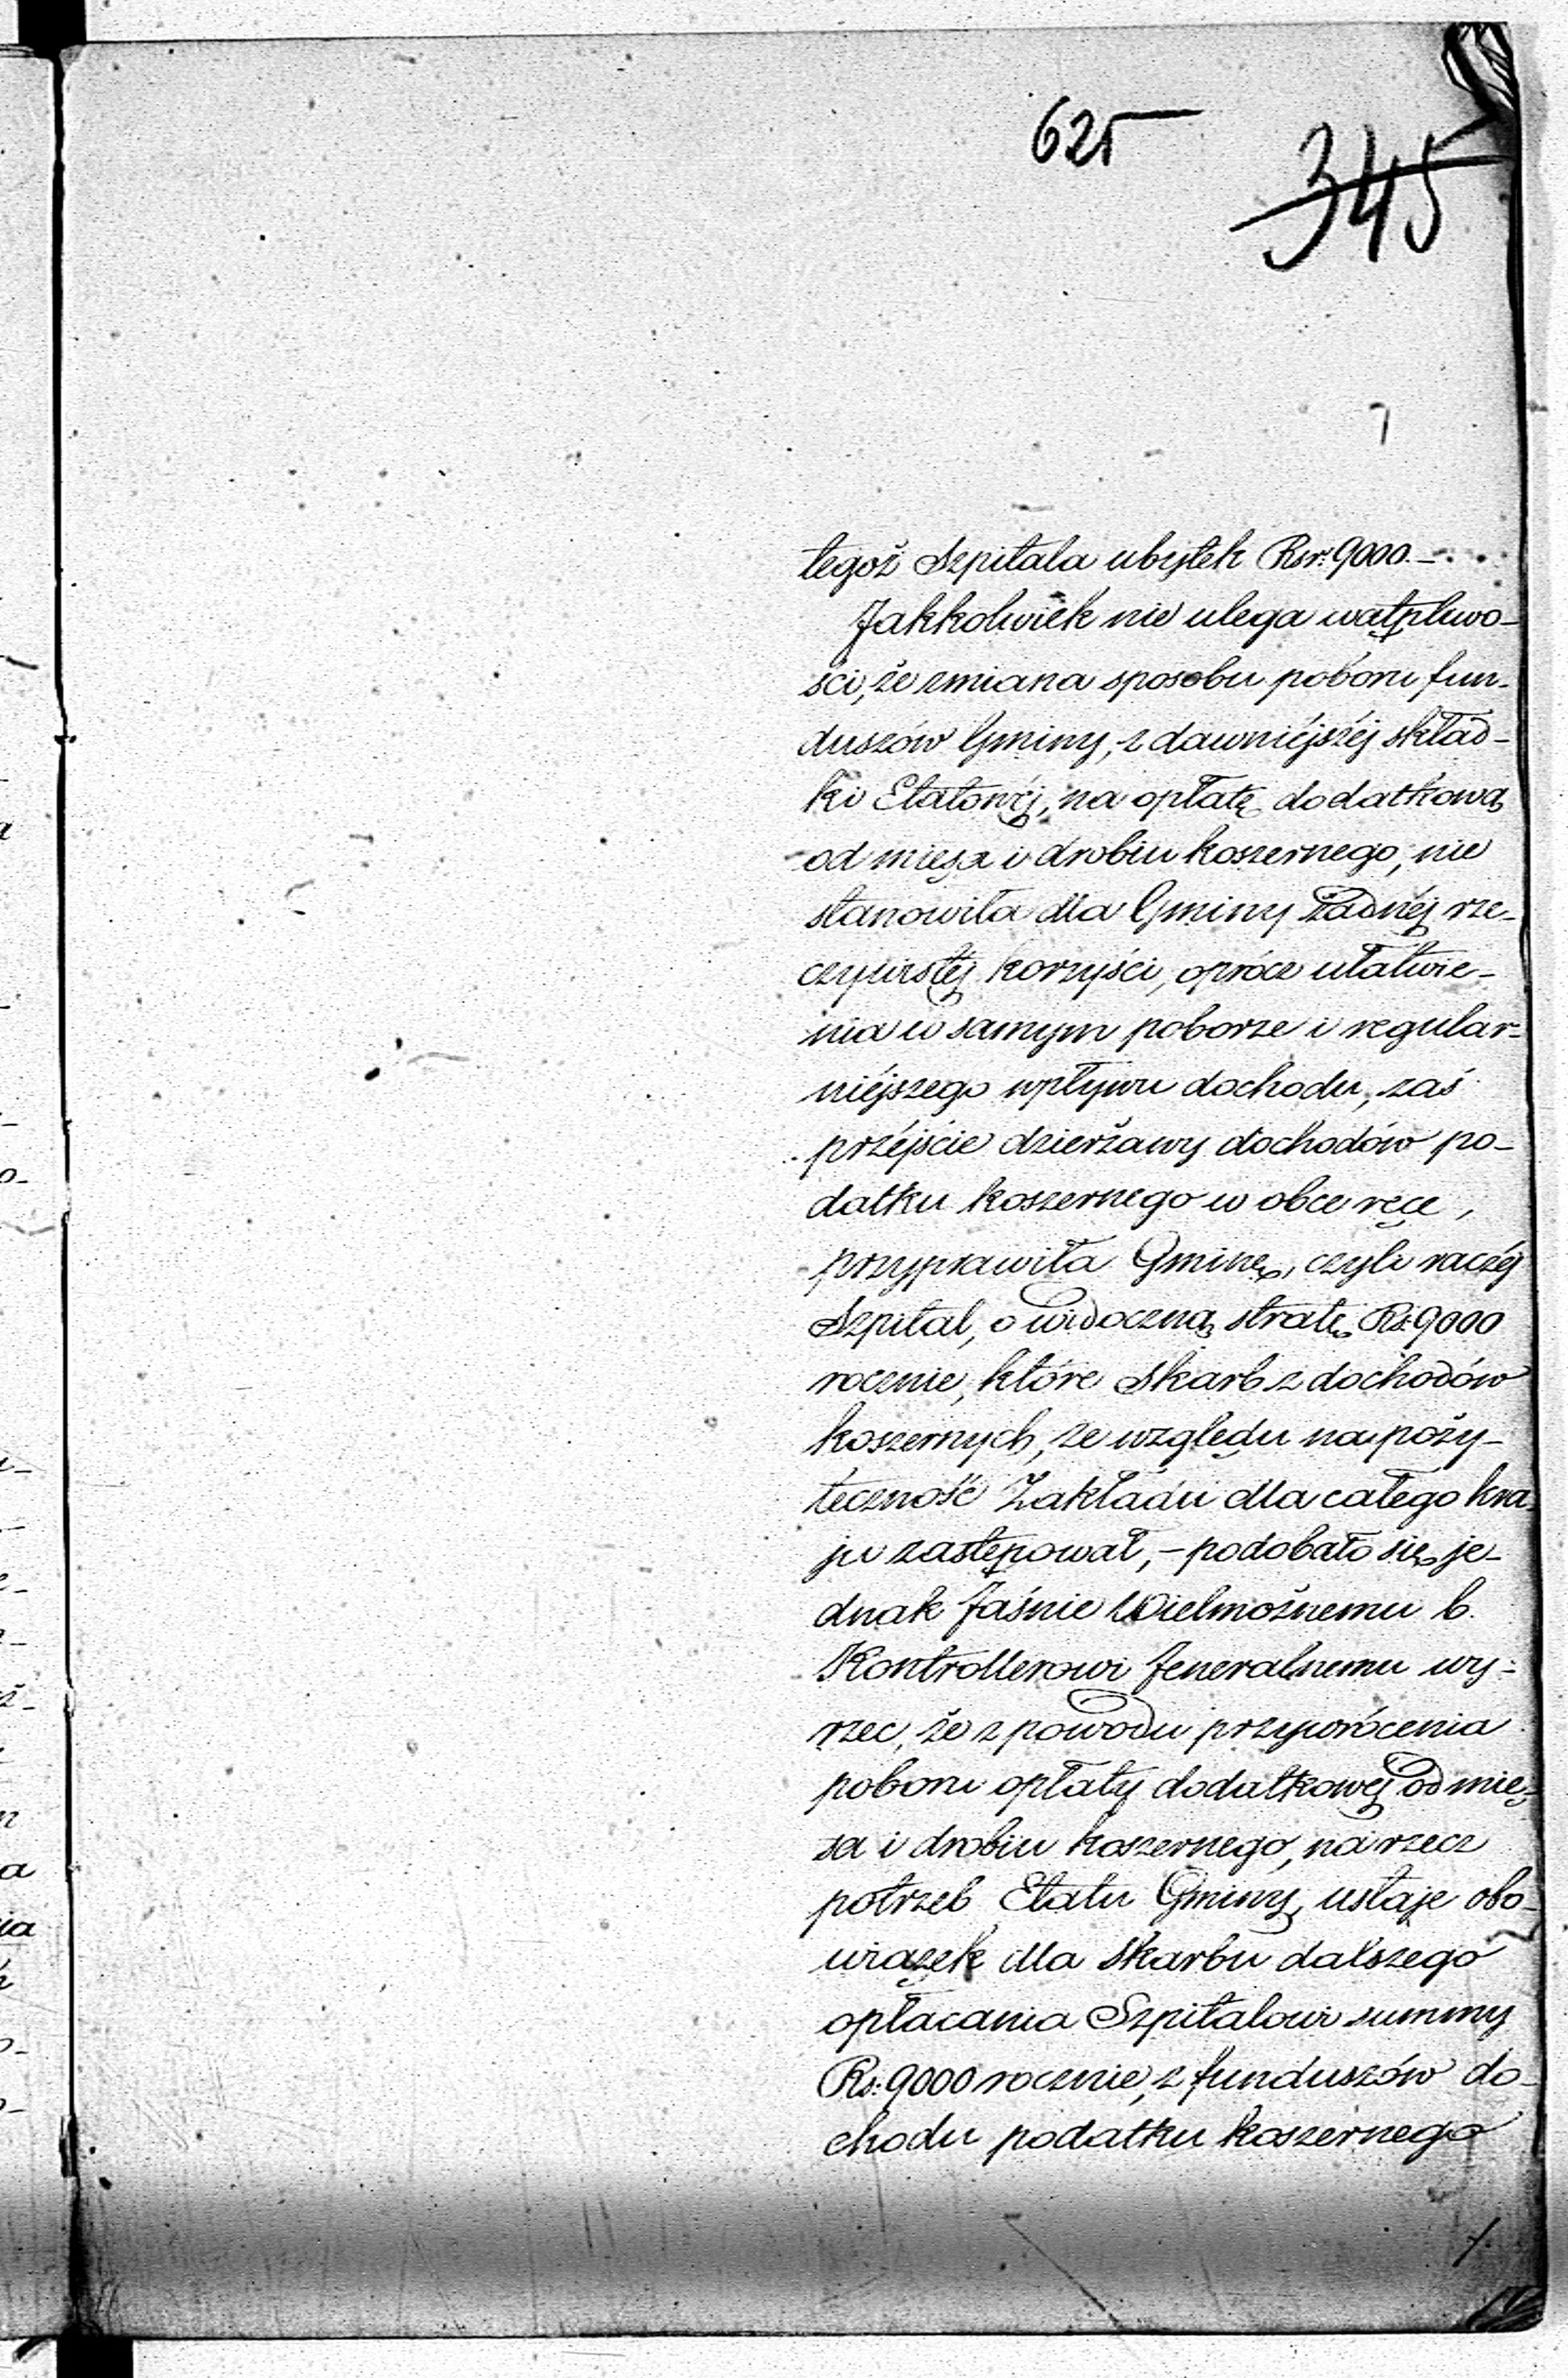 625
345
7
tegoż Szpitala ubytek Rsr: 9000.—
Jakkolwiek nie ulega wątpliwo-
ści, że zmiana sposobu poboru fun-
duszów Gminy, z dawniéjszéj skład-
ki Etatowéj, na opłatę dodatkową
od mięsa i drobiu koszernego, nie
stanowiła dla Gminy żadnéj rze-
czywistéj korzyści, oprócz ułatwie-
nia w samym poborze i regular-
niéjszego wpływu dochodu, zaś
przéjście dzierżawy dochodów po-
datku koszernego w obce ręce,
przyprawiła Gminę, czyli raczéj
Szpital, o widoczną stratę Rs: 9000
rocznie, które Skarb z dochodów
koszernych, ze względu na poży-
teczność Zakładu dla całego kra-
ju zastępował, — podobało się je-
dnak Jaśnie Wielmożnemu b.
Kontrollerowi Jeneralnemu wy-
rzec, że z powodu przywrócenia
poboru opłaty dodatkowéj od mię-
sa i drobiu koszernego, na rzecz
potrzeb Etatu Gminy, ustaje obo-
wiązek dla Skarbu dalszego
opłacania Szpitalowi summy
Rs: 9000 rocznie, z funduszów do-
chodu podatku koszernego